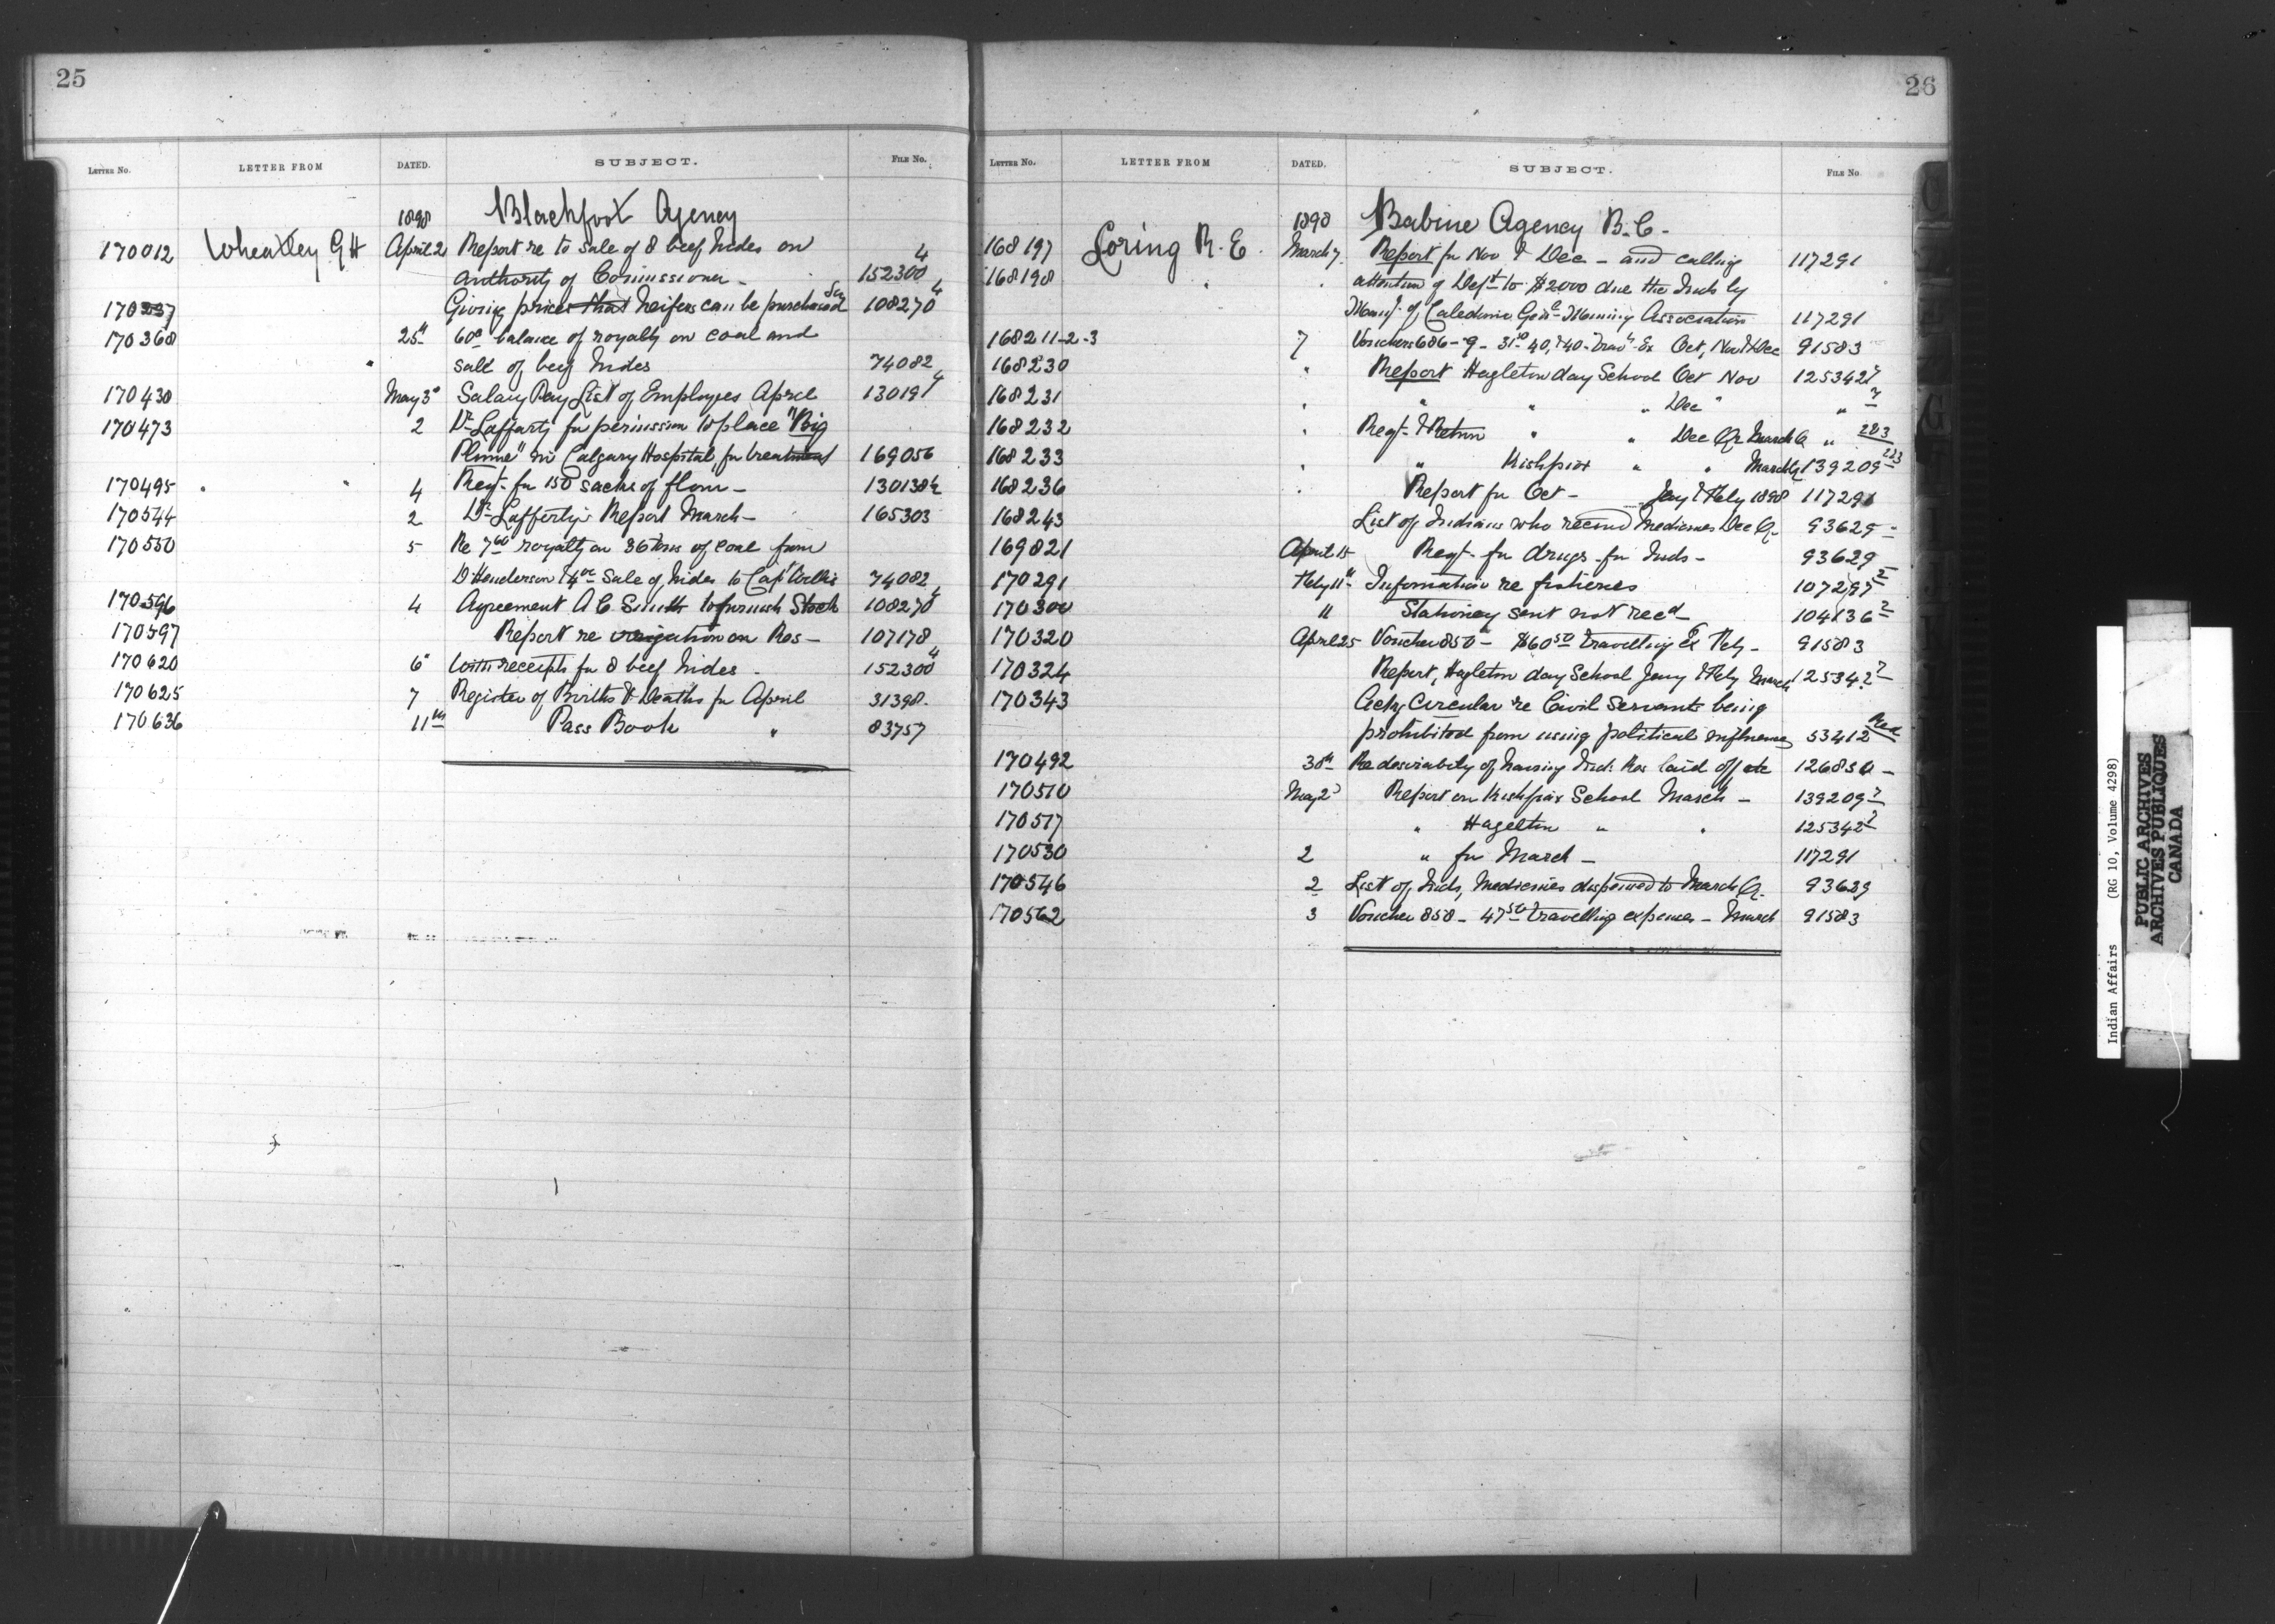 25
LETTER NO. LETTER FROM DATED. SUBJECT. FILE No.
1898 Blackfoot Agency
170012 Wheatley G H April 2 Report re to sale of 8 beef hides on
authority of Commissioner - 152300 4
170337 Giving prices that heifers can be purchased 108270 4
170368 25th 60c balance of royalty on coal and
" sale of beef hides 74082
170430 May 3d Salary Pay List of Employees April 13019 4
170473 2 Dr Lafferty for permission to place "Big
Plume" in Calgary Hospital for treatment 169056
170495 " " 4 Reqt. for 150 sacks of flour - 130138
170544 2 Dr Lafferty's Report March - 165303
170550 5 Re 7 60 royalty on 36 tons of coal from
D Henderson & 4 sale of hides to Capt 74082
170596 4 Agreement A C Smith to furnish Stock 108270 4
170597 Report re irrigation on Res - 107178
170620 6" With receipts for 8 beef hides - 152300 4
170625 7 Register of Births & Deaths for April 31398.
170636 11th Pass Book " 83757
26
LETTER NO. LETTER FROM DATED. SUBJECT. FILE No
1898 Babine Agency B.C.-
168197 Loring R. E. March 7. Report for Nov & Dec - and calling 117291
168198 " " attention of Dept to $2000 due the Inds by
of Caledonia Genl Mining Association 117291
168211-2-3 7 Vouchers 686-9- 31 50 40, & 40- Travg Ex Oct, Nov & Dec 91583
168230 " Report Hagleton day School Oct Nov 125342 2
168231 " " " " Dec " " 2
168232 " Reqt. & Return " " Dec Qr March Q " 2&3
168233 " " Kishpiax " " March Q 139209 2&3
168236 " Report for Oct - Jany & Feby 1898 117291
168243 List of Indians who received Medicines Dec Q. 93629 -
169821 April 15 Reqt. for drugs for Inds - 93629 -
170291 Feby 11" Information re fisheries 107297 2
170300 11 Stationey sent not recd - 104136 2
170320 April 25 Voucher 850 - $60 50 travelling Ex Feby - 91583
170324 Report, Hagleton day School Jany & Feby March 125342 2
170343 Ackg Circular re Civil Servants being
prohibited from using political influence 53412 Red
170492 30th Re desirability of having Ind. Res laid off etc 126850 -
170510 May 2d Report on Kishpiax School March - 139209 2
170517 " Hagelton " " 125342 2
170530 2 " for March - 117291
170546 2 List of Inds, Medicines dispensed to March Q. 93629
170562 3 Voucher 858 - 47 50 travelling expenses - March 91583
Indian Affairs (RG 10, Volume 4298)
PUBLIC ARCHIVES
ARCHIVES PUBLIQUES
CANADA